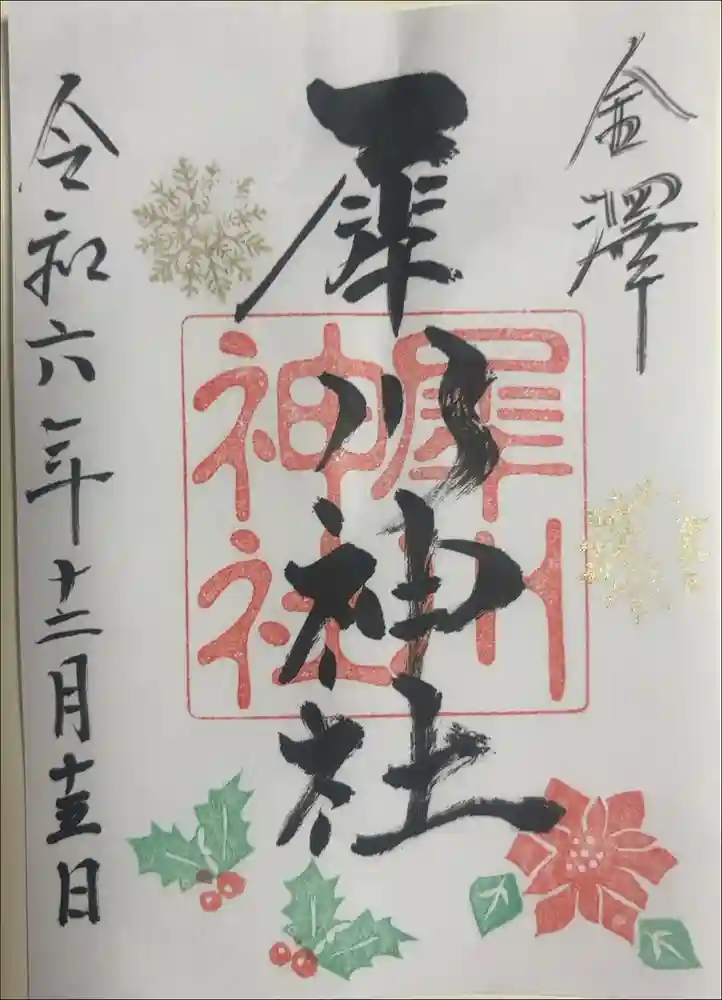 金澤
犀川神社
犀川
神社
令和六年十二月十五日